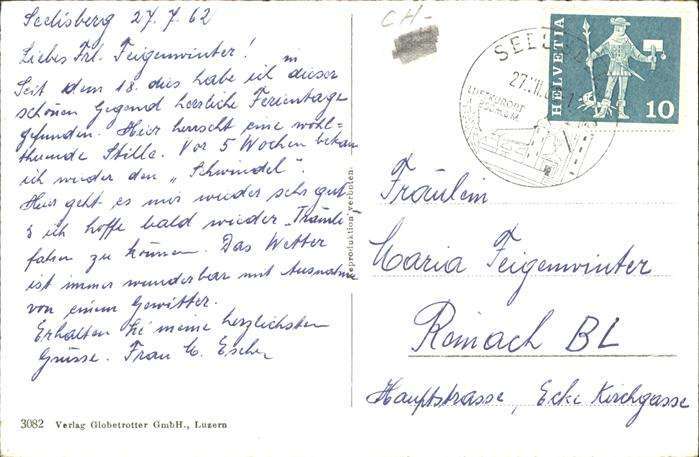 Seelisberg 27.7.62
Liebes Frl. Feigenwinter!
Seit dem 18. dies habe ich in dieser
schönen Gegend herrliche Ferientage
gefunden. Hier herrscht eine wohl=
tuende Stille. Vor 5 Wochen bekam
ich wieder den „Schwindel".
Hier geht es mir wieder sehr gut
& ich hoffe bald wieder „Trämle"
fahren zu können. Das Wetter
ist immer wunderbar mit Ausnahme
von einem Gewitter.
Erhalten Sie meine herzlichsten
Grüsse. Frau M. Escher
3082 Verlag Globetrotter GmbH., Luzern
Reproduktion verboten
CH-
SEELISBERG
27.VII.
LUFTKURORT
HELVETIA
10
Fräulein
Maria Feigenwinter
Reinach BL
Hauptstrasse, Ecke Kirchgasse